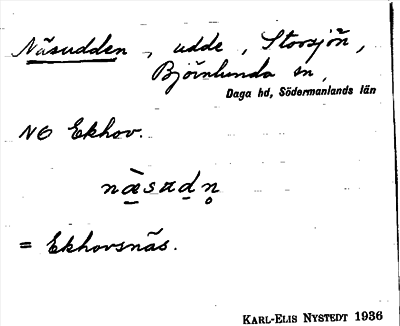 Näsudden, udde, Storsjön,
Björnlunda sn,
Daga hd, Södermanlands län
NO Ekhov.
= Ekhovsnäs.
KARL-ELIS NYSTEDT 1936